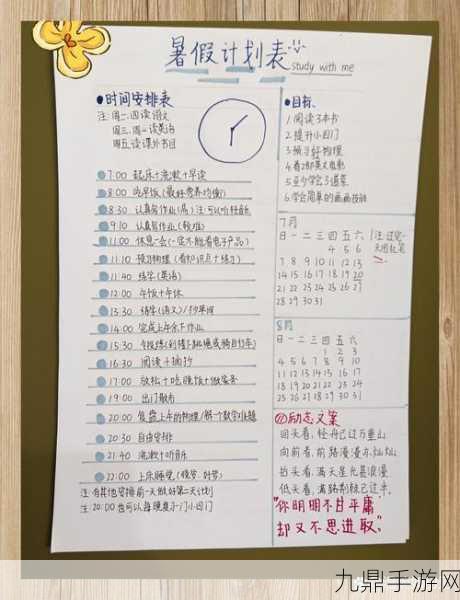 暑假计划表
study with me
●时间安排表
注:周一.四读语文
周三.周一读英语
周五读课外书目
7:00 起床+洗漱+早读
8:00 吃早饭(最好营养均衡)
8:30 认真写作业(易)注:可以听轻音
9:10 认真写作业(较难)
11:00 休息一会(一定不能看电子产品)
11:10 预习物理(看知识点+练习)
11:40 练字(英语)
12:00 午饭+午休
13:30 练字(语文)/抄单词
14:00 完成上午余下作业
15:30
16:30 阅读+摘抄
17:00 放松+吃晚饭+做家务
19:00 出门散步
20:00 复盘上午的物理/解一个数学难题
20:30 自由安排
21:40 洗漱+听音乐
22:00 上床睡觉
注:有其他安排前一天做好第二天计划
注:20:00也可以每晚复习一门小四门
●目标.
1.阅读3本书
2.提升小四门
3.预习好物理
4.看2部英文电影
5.至少学会3道菜
6.学会简单的画画技能
7月
日一二三四五六
4 5 6
7 8 9 10 11 12 13
14 15 16 17 18 19 20
21 22 23 24 25 26 27
28 29 30 31
注:过完一天画红笔
8月
日一二三四五六
1 2 3
4 5 6 7 8 9 10
11 12 13 14 15 16 17
18 19 20 21 22 23 24
25 26 27 28 29 30 31
励志文案
回头看,轻舟已过万重山
向前看,前路漫漫亦灿灿
抬头看,满天星光甚浪漫
低头看,满路荆棘已过半.
"你明明不甘平庸
却又不思进取."
九鼎手游网